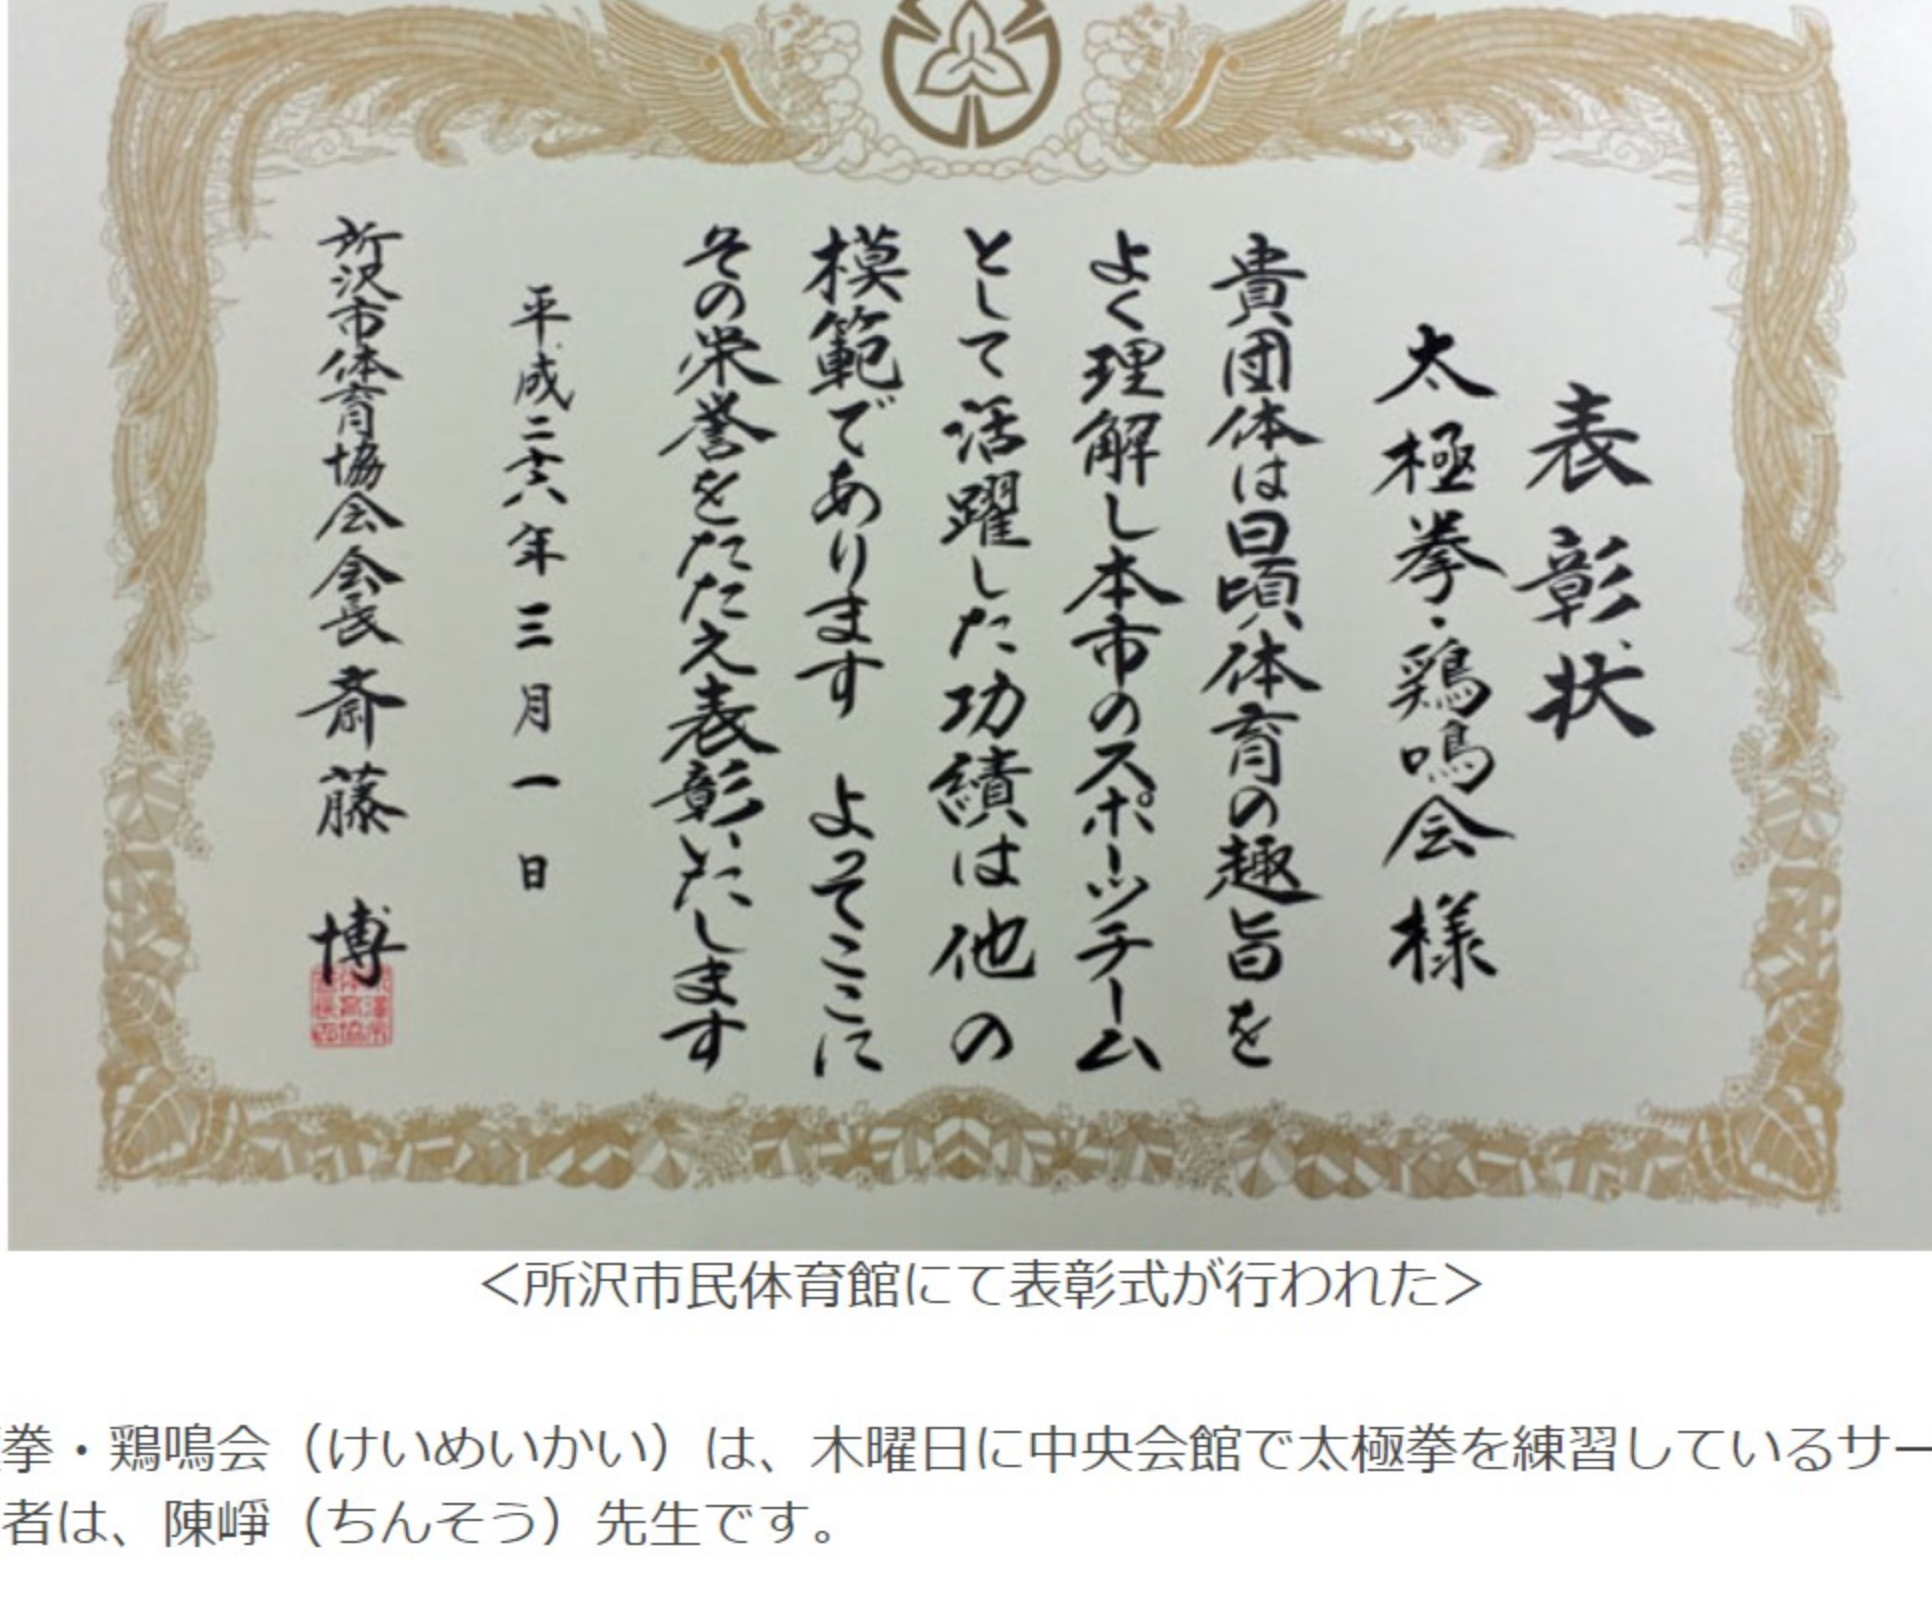 表彰状
太極拳・鶏鳴会様
貴団体は日頃体育の趣旨を
よく理解し本市のスポーツチーム
として活躍した功績は他の
模範であります よってここに
その栄誉をたたえ表彰いたします
平成二十六年三月一日
所沢市体育協会会長 斎藤 博
＜所沢市民体育館にて表彰式が行われた＞
拳・鶏鳴会（けいめいかい）は、木曜日に中央会館で太極拳を練習しているサー
者は、陳崢（ちんそう）先生です。